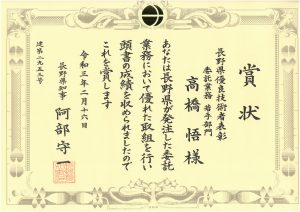 賞状
長野県優良技術者表彰
委託業務 若手部門
高橋 悟 様
あなたは長野県が発注した委託
業務において優れた取組を行い
頭書の成績を収められましたので
これを賞します
令和三年二月十六日
長野県知事 阿部守一
建第一九五三号